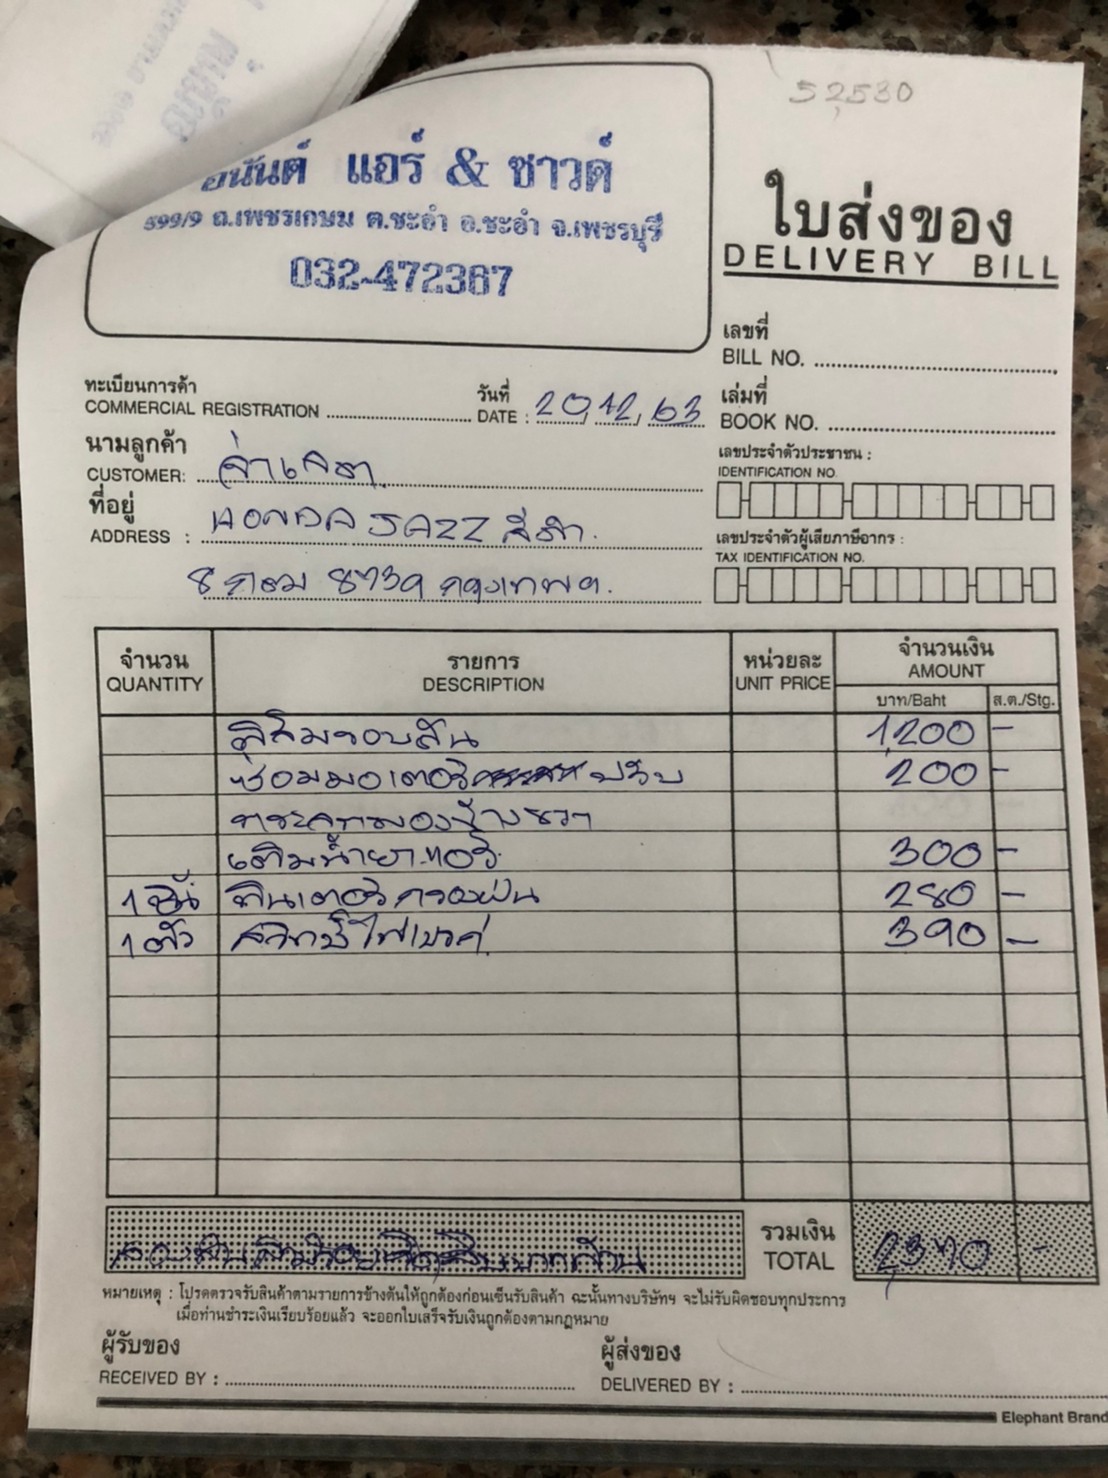 52,530
อนันต์ แอร์ & ซาวด์
599/9 ถ.เพชรเกษม ต.ชะอำ อ.ชะอำ จ.เพชรบุรี
032-472367
ใบส่งของ
DELIVERY BILL
เลขที่
BILL NO.
ทะเบียนการค้า
COMMERCIAL REGISTRATION
วันที่
DATE : 20/12/63
เล่มที่
BOOK NO.
นามลูกค้า
CUSTOMER: จ่าเดชา
เลขประจำตัวประชาชน :
IDENTIFICATION NO.
ที่อยู่
ADDRESS : HONDA JAZZ สีดำ
เลขประจำตัวผู้เสียภาษีอากร :
TAX IDENTIFICATION NO.
8กณ 8739 กรุงเทพฯ.
จำนวน
QUANTITY
รายการ
DESCRIPTION
หน่วยละ
UNIT PRICE
จำนวนเงิน
AMOUNT
บาท/Baht ส.ต./Stg.
ฟิล์มรอบคัน 1,200 -
ซ่อมมอเตอร์ ปรับ 200 -
กระจกมองข้างขวา
เติมน้ำยาแอร์ 300 -
1 ชิ้น ฟิลเตอร์กรองฝุ่น 280 -
1 ตัว สวิทช์ไฟเบรค 390 -
สองพันสามร้อยเจ็ดสิบบาทถ้วน
รวมเงิน
TOTAL 2,370 -
หมายเหตุ : โปรดตรวจรับสินค้าตามรายการข้างต้นให้ถูกต้องก่อนเซ็นรับสินค้า ฉะนั้นทางบริษัทฯ จะไม่รับผิดชอบทุกประการ
เมื่อท่านชำระเงินเรียบร้อยแล้ว จะออกใบเสร็จรับเงินถูกต้องตามกฎหมาย
ผู้รับของ
RECEIVED BY :
ผู้ส่งของ
DELIVERED BY :
Elephant Brand